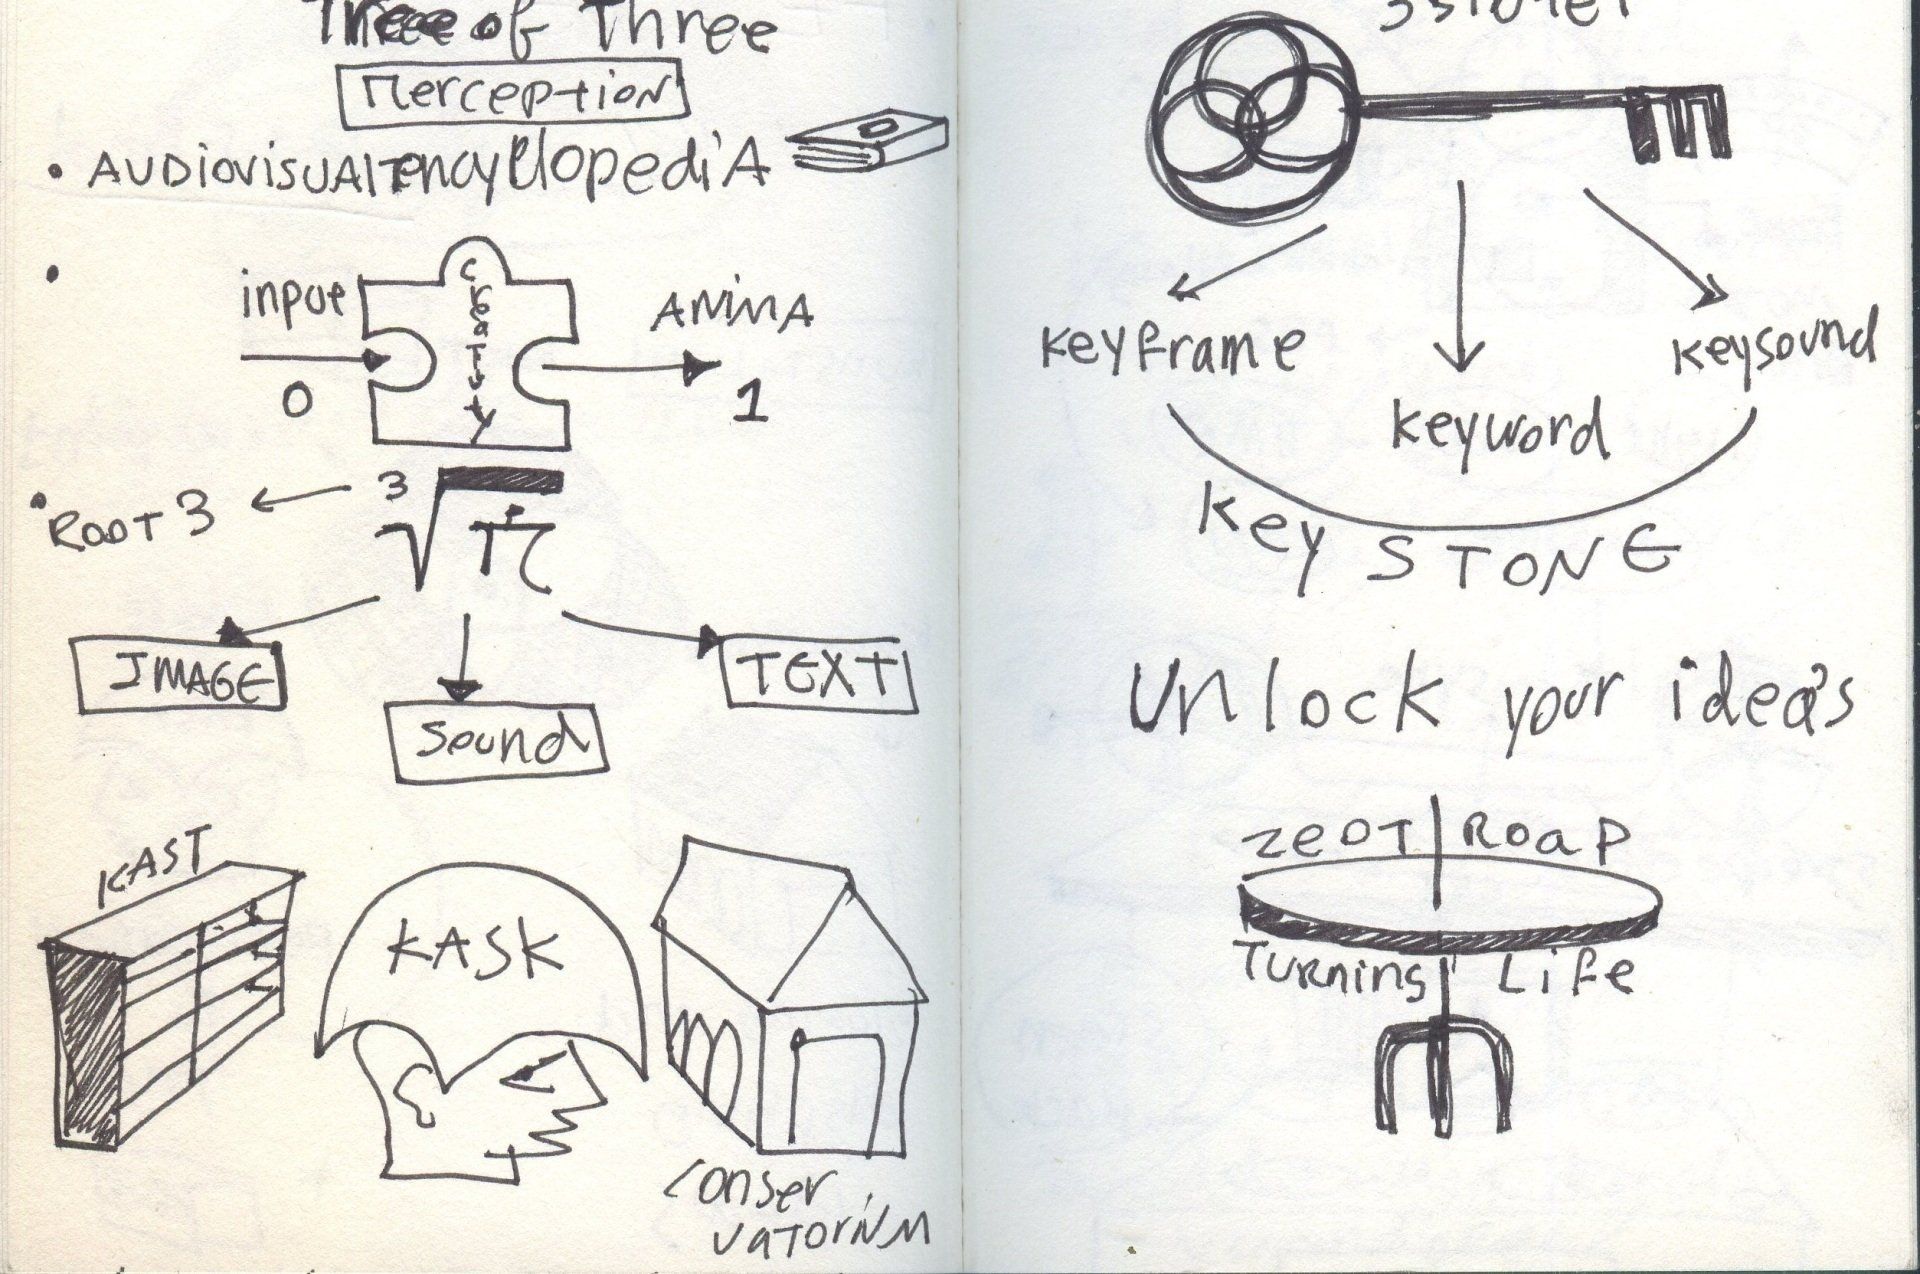 Three of Three
Merception
• AUDIOVISUAL Encyclopedia
•
input
CREATIVITY
ANIMA
0
1
• ROOT 3
3
√
π
IMAGE
Sound
TEXT
KAST
KASK
Conser
vatorium
keyframe
keyword
keysound
Key STONE
Unlock your idea's
ZEOT | ROAP
Turning Life